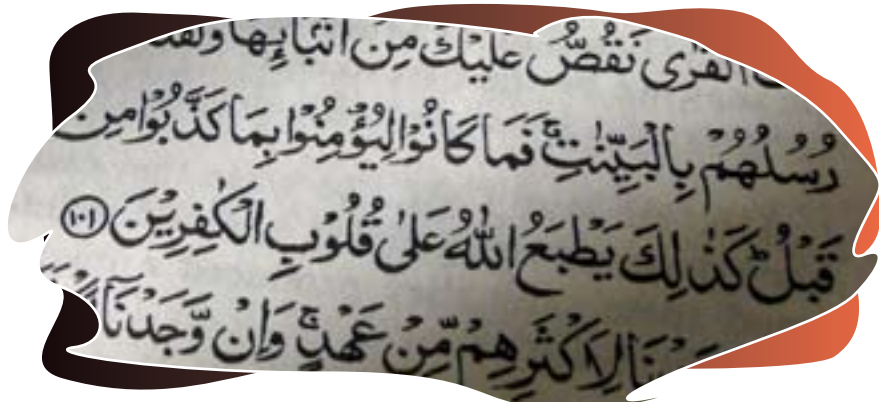 الْقُرٰى نَقُصُّ عَلَيْكَ مِنْ اَنْۢبَآىِٕهَا وَلَقَدْ
رُسُلُهُمْ بِالْبَيِّنٰتِ ۚ فَمَا كَانُوْا لِيُؤْمِنُوْا بِمَا كَذَّبُوْا مِنْ
قَبْلُ ؕ كَذٰلِكَ يَطْبَعُ اللّٰهُ عَلٰى قُلُوْبِ الْكٰفِرِيْنَ ﴿۱۰۱﴾
لِاَكْثَرِهِمْ مِّنْ عَهْدٍ ۚ وَاِنْ وَّجَدْنَاۤ